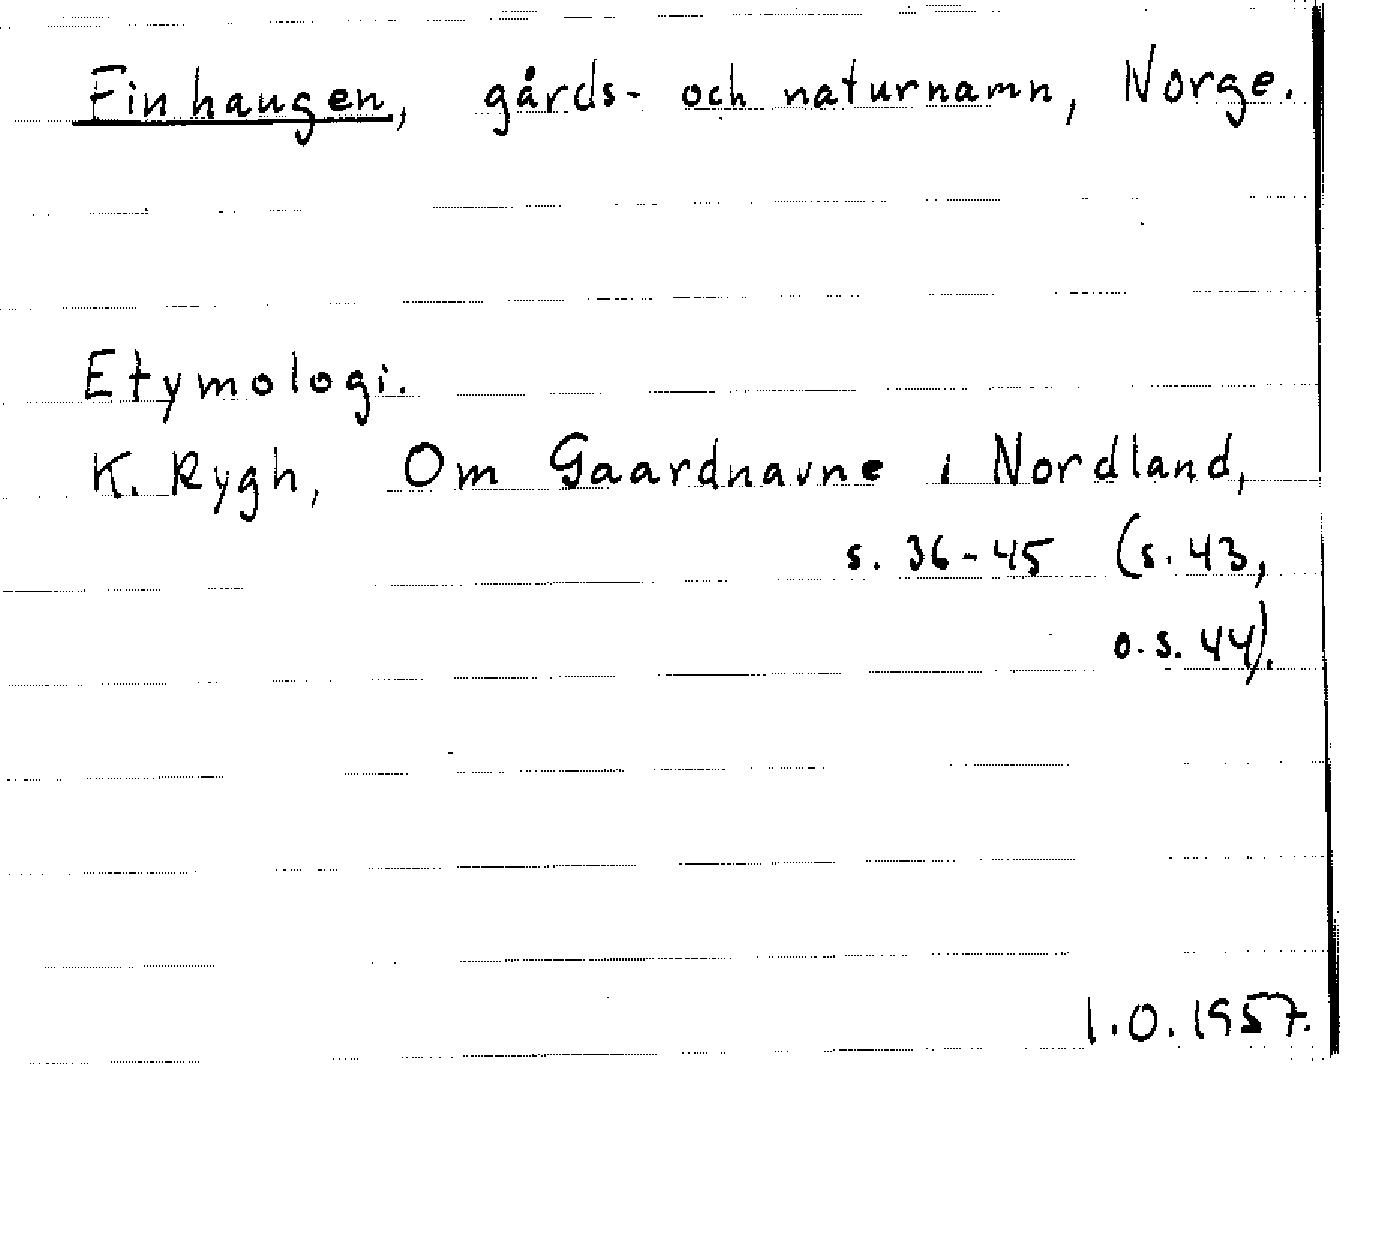 Finhaugen, gårds- och naturnamn, Norge.
Etymologi.
K. Rygh, Om Gaardnavne i Nordland,
s. 36-45 (s. 43,
o. s. 44).
I.O. 1957.